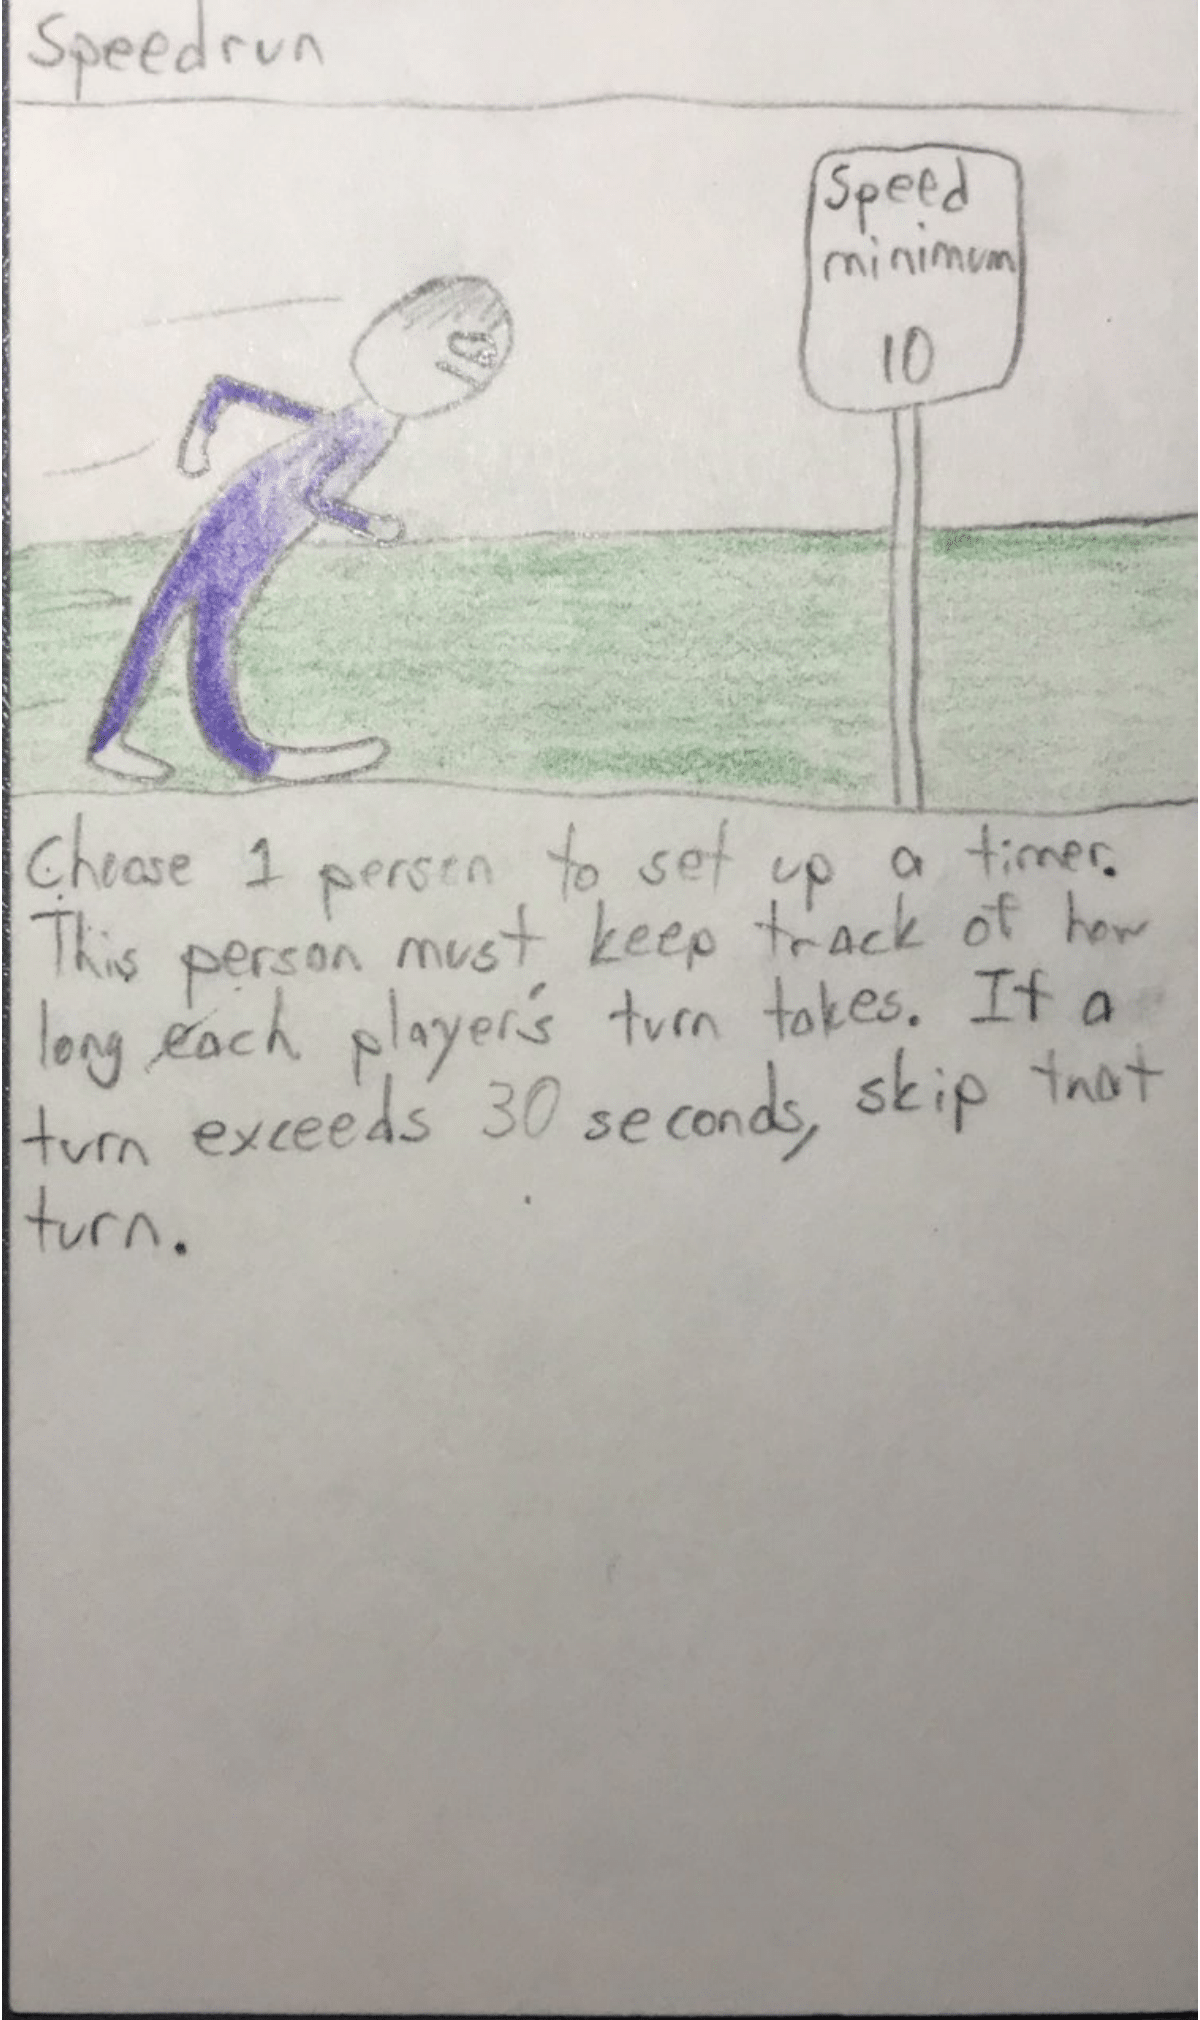 Speedrun
Speed
minimum
10
Choose 1 person to set up a timer.
This person must keep track of how
long each player's turn takes. If a
turn exceeds 30 seconds, skip that
turn.